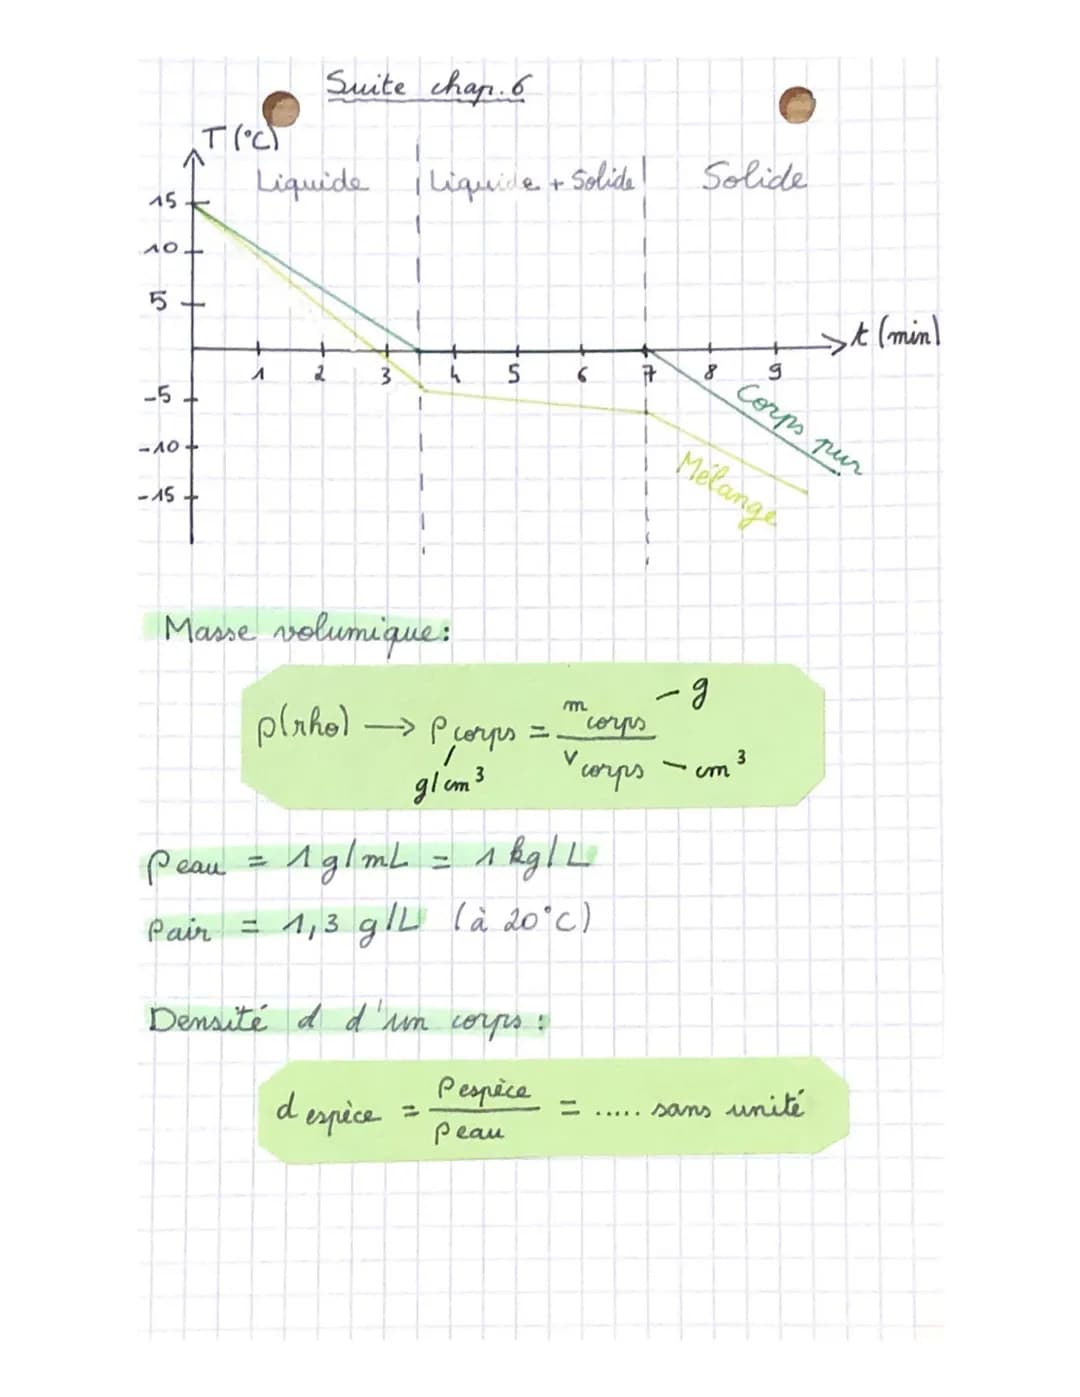 Suite chap. 6
T (°C)
Liquide | Liquide + Solide | Solide
15
10
5
t (min)
1 2 3 4 5 6 7 8 9
-5
-10
-15
Corps pur
Mélange
Masse volumique :
ρ(rho) → ρ corps = m corps / v corps
- g
g/cm³
- cm³
ρ eau = 1 g/mL = 1 kg/L
ρ air = 1,3 g/L (à 20°C)
Densité d d'un corps :
d espèce = ρ espèce / ρ eau = ..... sans unité